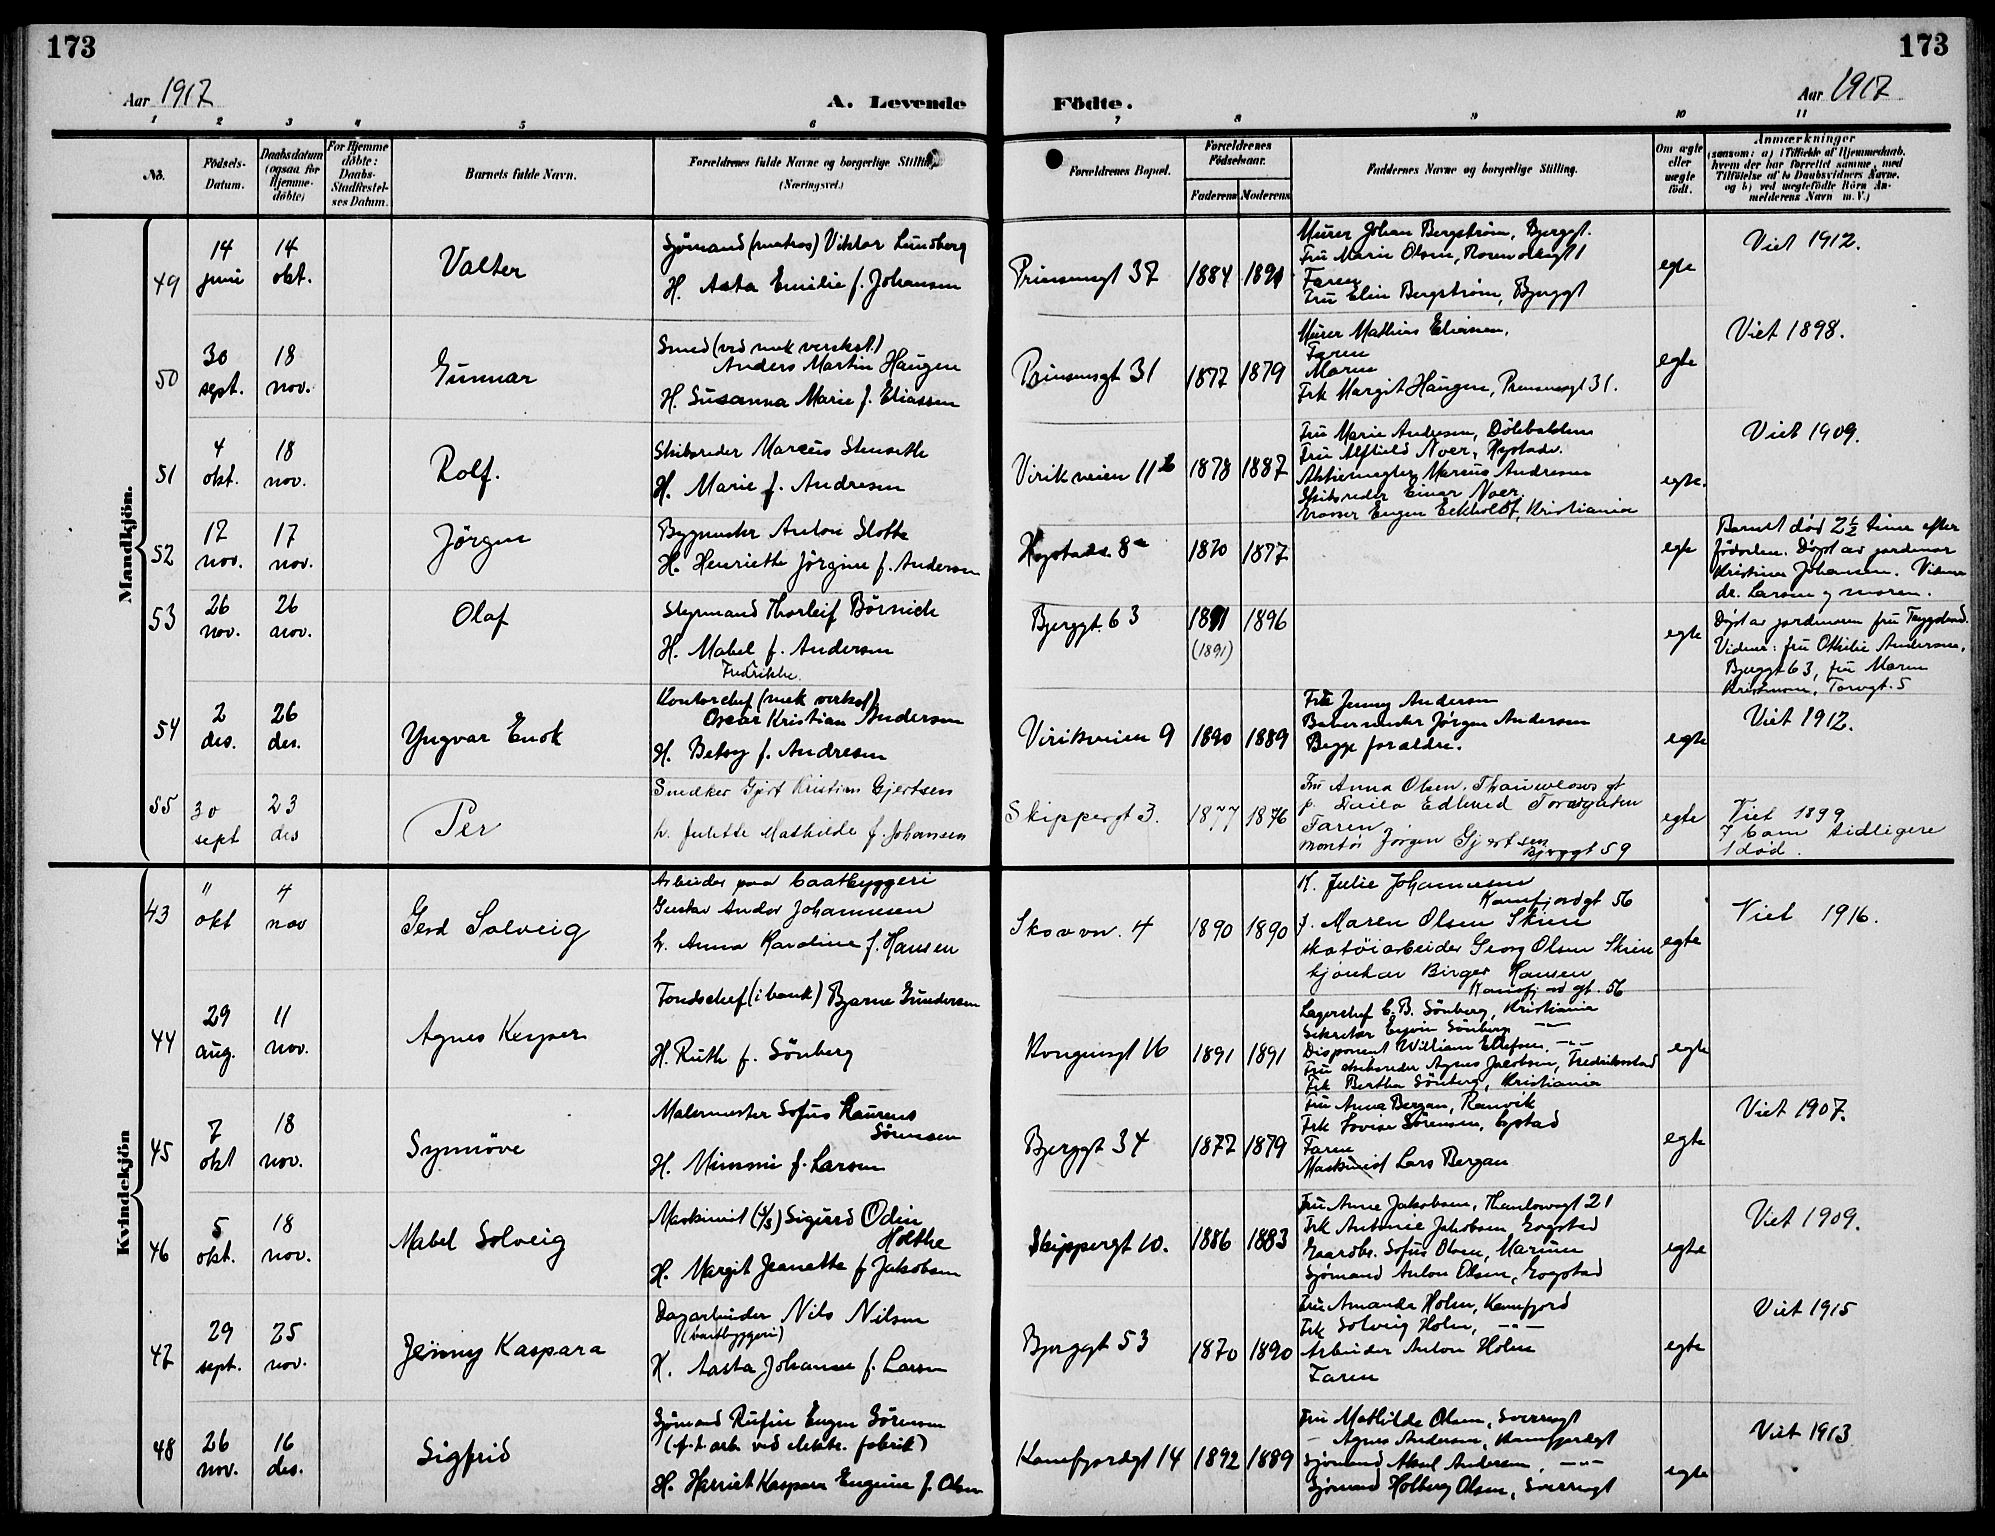 173
173
Aar 1917
A. Levende
Födte.
Aar 1917
1 2 3 4 5 6 7 8 9 10 11
No.
Födsels-Datum.
Daabsdatum (ogsaa for Hjemme-döbte)
For Hjemme döbte: Daabs-Stadfæstel-ses Datum.
Barnets fulde Navn.
Forældrenes fulde Navne og borgerlige Stilling
(Næringsvei.)
Forældrenes Bopæl.
Forældrenes Födselsaar.
Faderens Moderens
Faddernes Navne og borgerlige Stilling.
Om ægte eller uægte födt.
Anmærkninger
(saasom: a) i Tilfælde af Hjemmedaab,
hvem der har forrettet samme, med
Tilföielse af to Daabsvidners Navne,
og b) ved uægtefödte Börn An-
melderens Navn m. V.)
Mandkjön.
49
14 juni
14 okt.
Valter
Sjömand (matros) Viktor Lundberg
H. Asta Emilie f. Johansen
Prinsensgt 37
1884 1891
Murer Johan Bergström, Bjerggt.
Fru Marie Olsen,
Faren
Fru Elin Bergström, Bjerggt
egte
Viet 1912.
50
30 sept.
18 nov.
Gunnar
Smed (ved mek verkst.)
Anders Martin Haugen
H. Susanna Marie f. Eliassen
Prinsensgt 31
1877 1879
Murer Mathias Eliassen,
Faren
Moren
Frk Margit Haugen, Prinsensgt 31.
egte
Viet 1898.
51
4 okt.
18 nov.
Rolf.
Skibsreder Marcus Stenseth
H. Marie f. Andresen
Virikveien 11 b
1878 1887
Fru Marie Andresen, Dölebakken
Fru Alfhild Noer, Hystadv.
Aktiemegler Marcus Andresen
Skibsreder Einar Noer.
Grosser Eugen Eckholdt, Kristiania
egte.
Viet 1909.
52
17 nov.
17 nov.
Jörgen
Bygmester Anton Slotte
H. Henriette Jörgine f. Andersen
Hystadv. 8 a
1870 1877
egte
Barnet död 2½ time efter
födselen. Döpt av jordmor
Kristine Johansen. Vidner
dr. Larsen og moren.
53
26 nov.
26 nov.
Olaf
Styrmand Thorleif Börnick
H. Mabel f. Andersen
Fredrikke.
Bjerggt. 63
1891 1896
(1891)
egte
Döpt av jordmoren fru
Vidner: fru Othilie Andersen,
Bjerggt 63, fru Maren
Torvgt. 5
54
2 des.
26 des.
Yngvar Enok
Kontorchef (mek verkst)
Oscar Kristian Andersen
H. Betsy f. Andresen
Virikveien 9
1890 1889
Frk Jenny Andersen
Bakermester Jörgen Andersen
Begge forældre.
egte
Viet 1912.
55
30 sept
23 des
Per
Snedker Gjert Kristian Gjertsen
h. Julette Mathilde f. Johansen
Skippergt 3.
1877 1876
Fru Anna Olsen, Thaulowsgt
f. Edlund Torvgaten
Faren
Montör Jörgen Gjertsen
Bjerggt 59
egte
Viet 1899
7 barn tidligere
1 död.
Kvindekjön
43
" okt
4 nov
Gerd Solveig
Arbeider paa baatbyggeri
Gustav Andor Johannesen
h. Anna Karoline f. Hansen
Skovvn. 4
1890 1890
K. Julie Johannesen
Kamfjordgt 56
f. Maren Olsen Skien
Skotöiarbeider Georg Olsen Skien
Birger Hansen
Kamfjordgt. 56
egte
Viet 1916.
44
29 aug.
11 nov.
Agnes Keyser
Fondschef (i bank) Bjarne Gundersen
H. Ruth f. Sönberg
Kongensgt 16
1891 1891
Lagerchef C. B. Sönberg, Kristiania
Sekretær Eyvin Sönberg —"—
Disponent William Ellefsen, —"—
Fru skibsreder Agnes Jacobsen, Fredrikstad
Frk Bertha Sönberg, Kristiania
egte
45
7 okt
18 nov.
Synnöve
Malermester Sofus Laurens
Sörensen
H. Mimmi f. Larsen
Bjerggt 34
1877 1879
Fru Anna Bergan, Ranvik
Frk Lovise Sörensen,
Faren
Maskinist Lars Bergan
egte
Viet 1907.
46
5 okt.
18 nov.
Mabel Solveig
Maskinist (d/s) Sigurd Odin
Holthe
H. Margit Jeanette f Jakobsen
Skippergt 10.
1886 1883
Fru Anne Jakobsen, Thaulowsgt 21
Frk Antonie Jakobsen, Gogstad
Gaardbr. Sofus Olsen, Marum
Sjömand Anton Olsen, Gogstad
egte
Viet 1909.
47
29 sept.
25 nov.
Jenny Kaspara
Dagarbeider Nils Nilsen
(baatbyggeri)
H. Aasta Johanne f. Larsen
Bjerggt 53
1870 1890
Fru Amanda Holm, Kamfjord
Frk Solveig Holm, —"—
Arbeider Anton Holm
Faren
egte
Viet 1915
48
26 nov.
16 des.
Sigfrid
Sjömand Rufin Eugen Sörensen
(f.t. arb. ved elektr. fabrik)
H. Harriet Kaspara Eugenie f. Olsen
Kamfjordgt 14
1892 1889
Fru Mathilde Olsen, Sverresgt
— Agnes Andersen, Kamfjordgt
Sjömand Aksel Andersen, —"—
Sjömand Holberg Olsen, Sverresgt
egte
Viet 1913